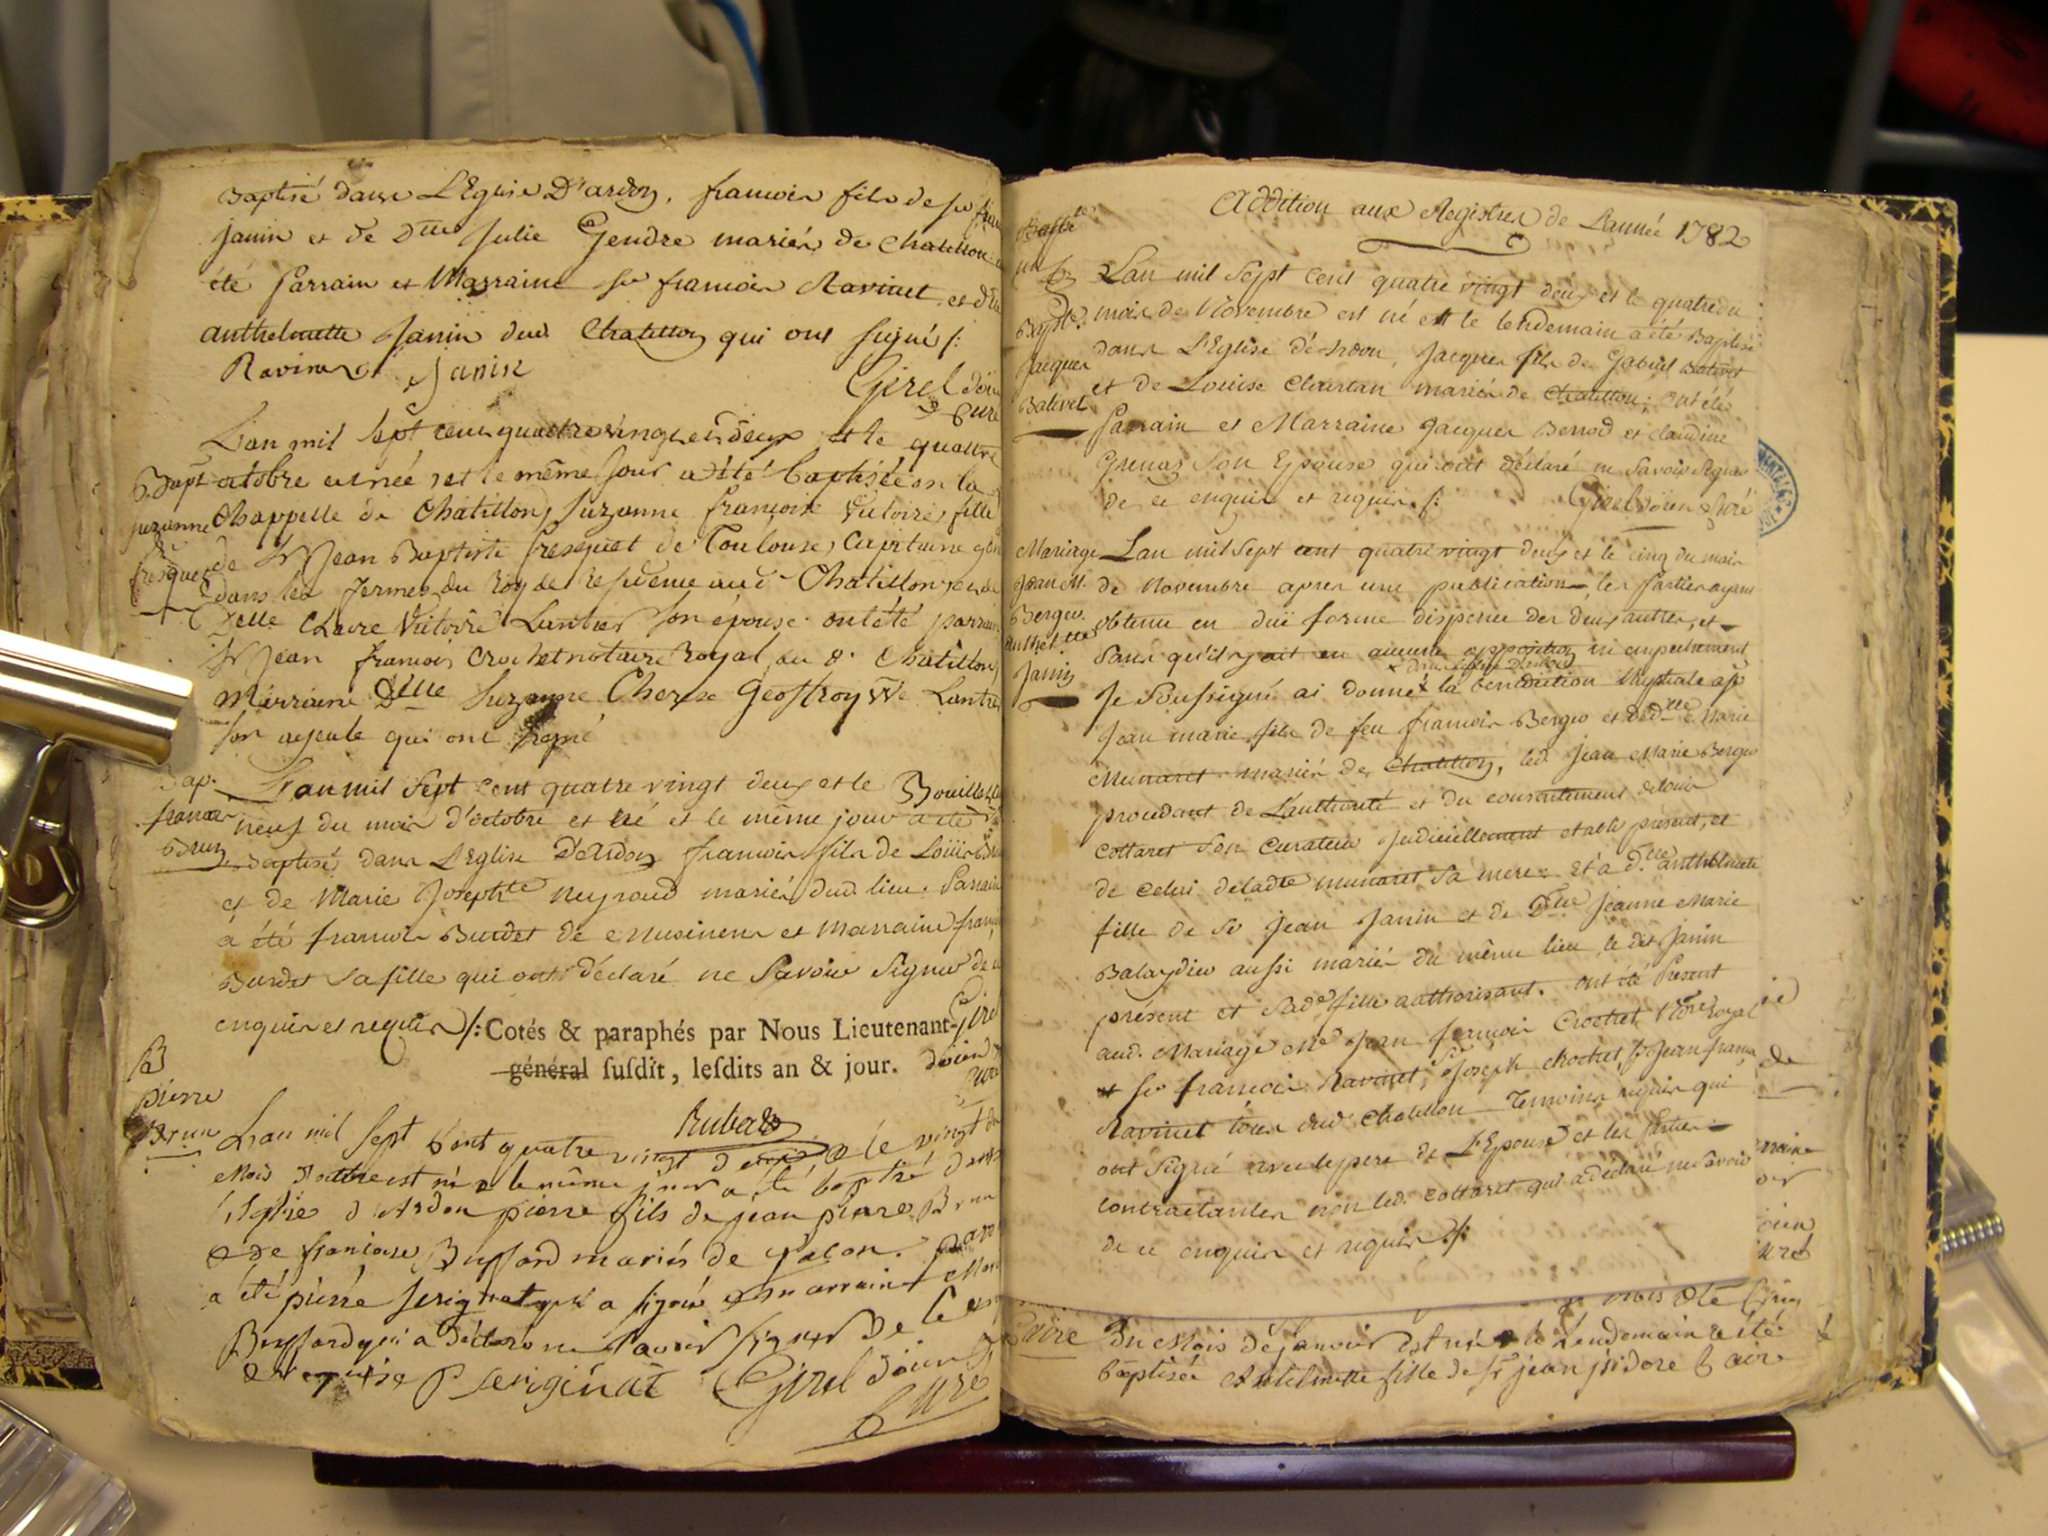 Baptisé dans L'Eglise D'ardon, francois fils de sr
janin et de Dlle Julie Gendre mariés de Chatillon
été Parrain et Marraine sr francois Ravinet et dlle
anthelmette Janin dud Chatillon qui ont signés /:
Ravinet Janin
Girel doien
Curé
L'an mil sept cent quattre vingt et deux et le quattre
Bapt octobre est née et le même jour a été baptisée en la
suzanne Chappelle de Chatillon, Suzanne françoise Victoire, fille
de Jean Baptiste fresquet de Toulouse, Capitaine
dans les fermes du Roy de residence aud Chatillon, et de
Delle Claire Victoire Lantier son épouse. ont été parrain
Jean francois Crochet notaire Royal au d. Chatillon
Marraine Delle Suzanne Therese Geoffroy Ve
son ayeule qui ont signé
Bap. L'an mil sept cent quatre vingt deux et le
francois neuf du mois d'octobre est né et le même jour a été
Brun baptisé dans L'Eglise D'Ardon francois fils de Loüis
et de Marie Josephte neyroud mariés dud. lieu. Parrain
à été francois Burdet de Musinens et Marraine
Burdet sa fille qui ont déclaré ne savoir signer de
enquis et requis /: Cotés & paraphés par Nous Lieutenant- Girel
général susdit, lesdits an & jour. doien
B
pierre
Brun L'an mil sept cent quatre vingt deux, et le vingt
Mois d'octobre est né et le même jour a été baptisé dans
l'Eglise d'Ardon pierre fils de jean pierre Brun
et de francoise Buffard mariés de
a été pierre serignat qui a signé et marraine
Buffard qui a déclaré ne savoir signer de ce
et requise P serigniat Girel doien
Curé
Addition aux Registres de L'année 1782
L'an mil sept cent quatre vingt deux et le quatre du
Baptte. mois de Novembre est né et le lendemain a été Baptisé
Jacques dans L'Eglise d'Ardon, Jacques fils de Gabriel Balivet
Balivet et de Louise Chartan mariés de Chatillon; ont été
Parrain et Marraine Jacques Berrod et claudine
Grenas son Epouse qui ont déclaré ne savoir signer
de ce enquis et requis /: Girel doien Curé
Mariage L'an mil sept cent quatre vingt deux et le cinq du mois
Jean M. de Novembre apres une publication, les parties ayant
obtenu en due forme dispense des deux autres, et
sans qu'il y ait eu aucune opposition ni empechement
Janin Je soussigné ai donné la benediction Nuptiale à
Jean marie fils de feu francois Berger et de dlle Marie
Munaret mariés de Chatillon, led. Jean Marie Berger
procedant de L'authorité et du consentement de
cottaret son curateur judiciellement etabli present, et
de celui de ladte munaret sa mere: Et à dlle anthelmette
fille de Sr Jean Janin et de Dlle Jeanne Marie
Balaydier aussi mariés du même lieu, le dit Janin
présent et sade fille authorisant. ont été Present
aud. Mariage Me Jean francois Crochet Nore Royal
et sr francois Ravinet, Joseph Crochet, sr Jean francois
Ravinet tous dud Chatillon Temoins requis qui
ont signé avec le pere de L'Epouse et les parties
contractantes non led. cottaret qui a déclaré ne savoir
de ce enquis et requis /:
Du Mois de janvier est née et le Lendemain a été
baptisée Anthelmette fille de sr jean isidore